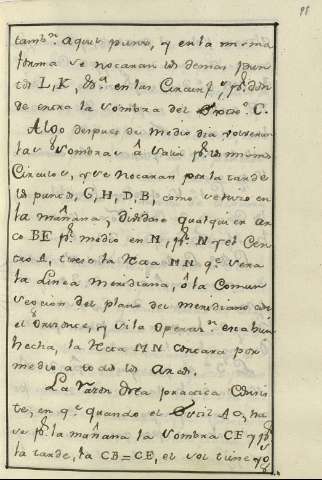 tamb.n aquel punto, y en la misma
forma se notaran los demas pun
tos I, K, &.a en las Circunf.s p.r don
de entra la sombra del C.
Algo despues de medio dia bolveran
las sombras â salir p.r los mismos
Circulos, y se notaran por la tarde
los puntos, G, H, D, B, como se hizo en
la mañana; dividase qualquier ar
co BE p.r medio en M, p.r N y el Cen
tro A, tirese la Recta MN q.e sera
la Linea meridiana, ô la Comun
seccion del plano del meridiano con
el Orizonte, y si la Operac.n esta bien
hecha, la Recta MN cortara por
medio a todos los Arcos.
La Razon desta practica Consis
te, en q.e quando el Sol
se p.r la mañana la sombra CE y p.r
la tarde, la CB=CE, el sol tiene